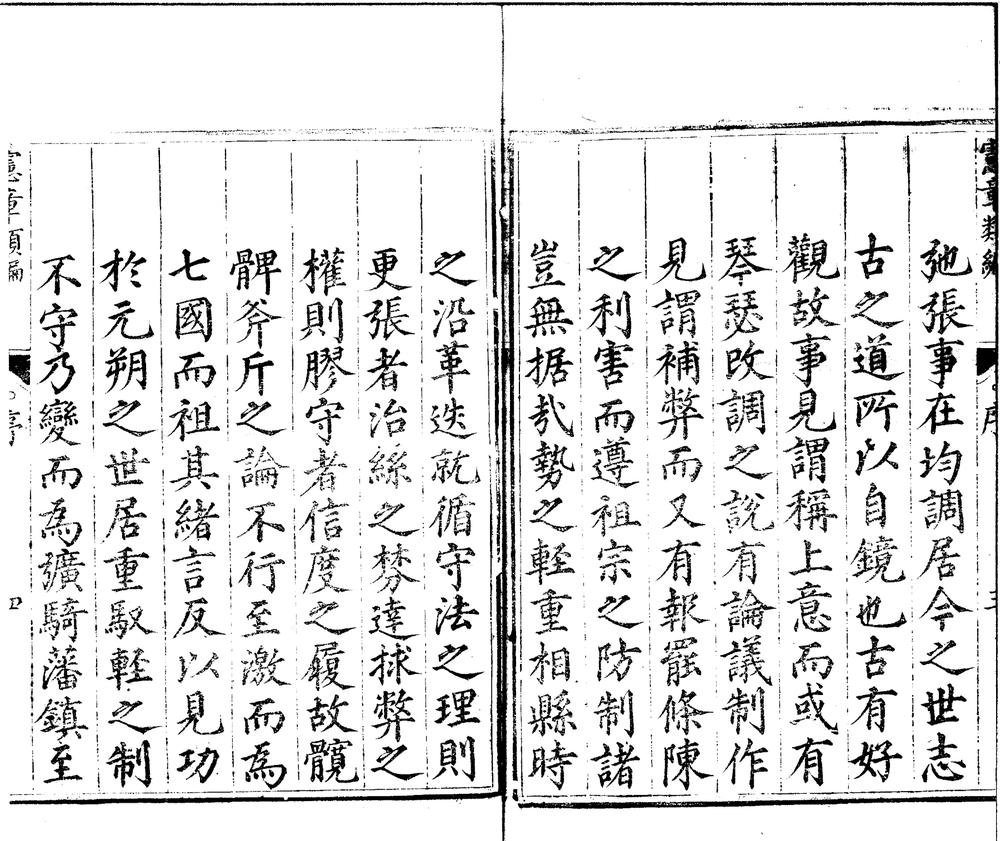 憲章類編
序
弛張事在均調居今之世志
古之道所以自鏡也古有好
觀故事見謂稱上意而或有
琴瑟改調之說有論議制作
見謂補弊而又有報罷條陳
之利害而遵祖宗之防制諸
豈無据㢤勢之輕重相縣時
之沿革迭就循守法之理則
更張者治絲之棼達捄弊之
權則膠守者信度之履故髖
髀斧斤之論不行至激而為
七國而祖其緒言反以見功
於元朔之世居重馭輕之制
不守乃變而為彍騎藩鎮至
憲章類編
序
四